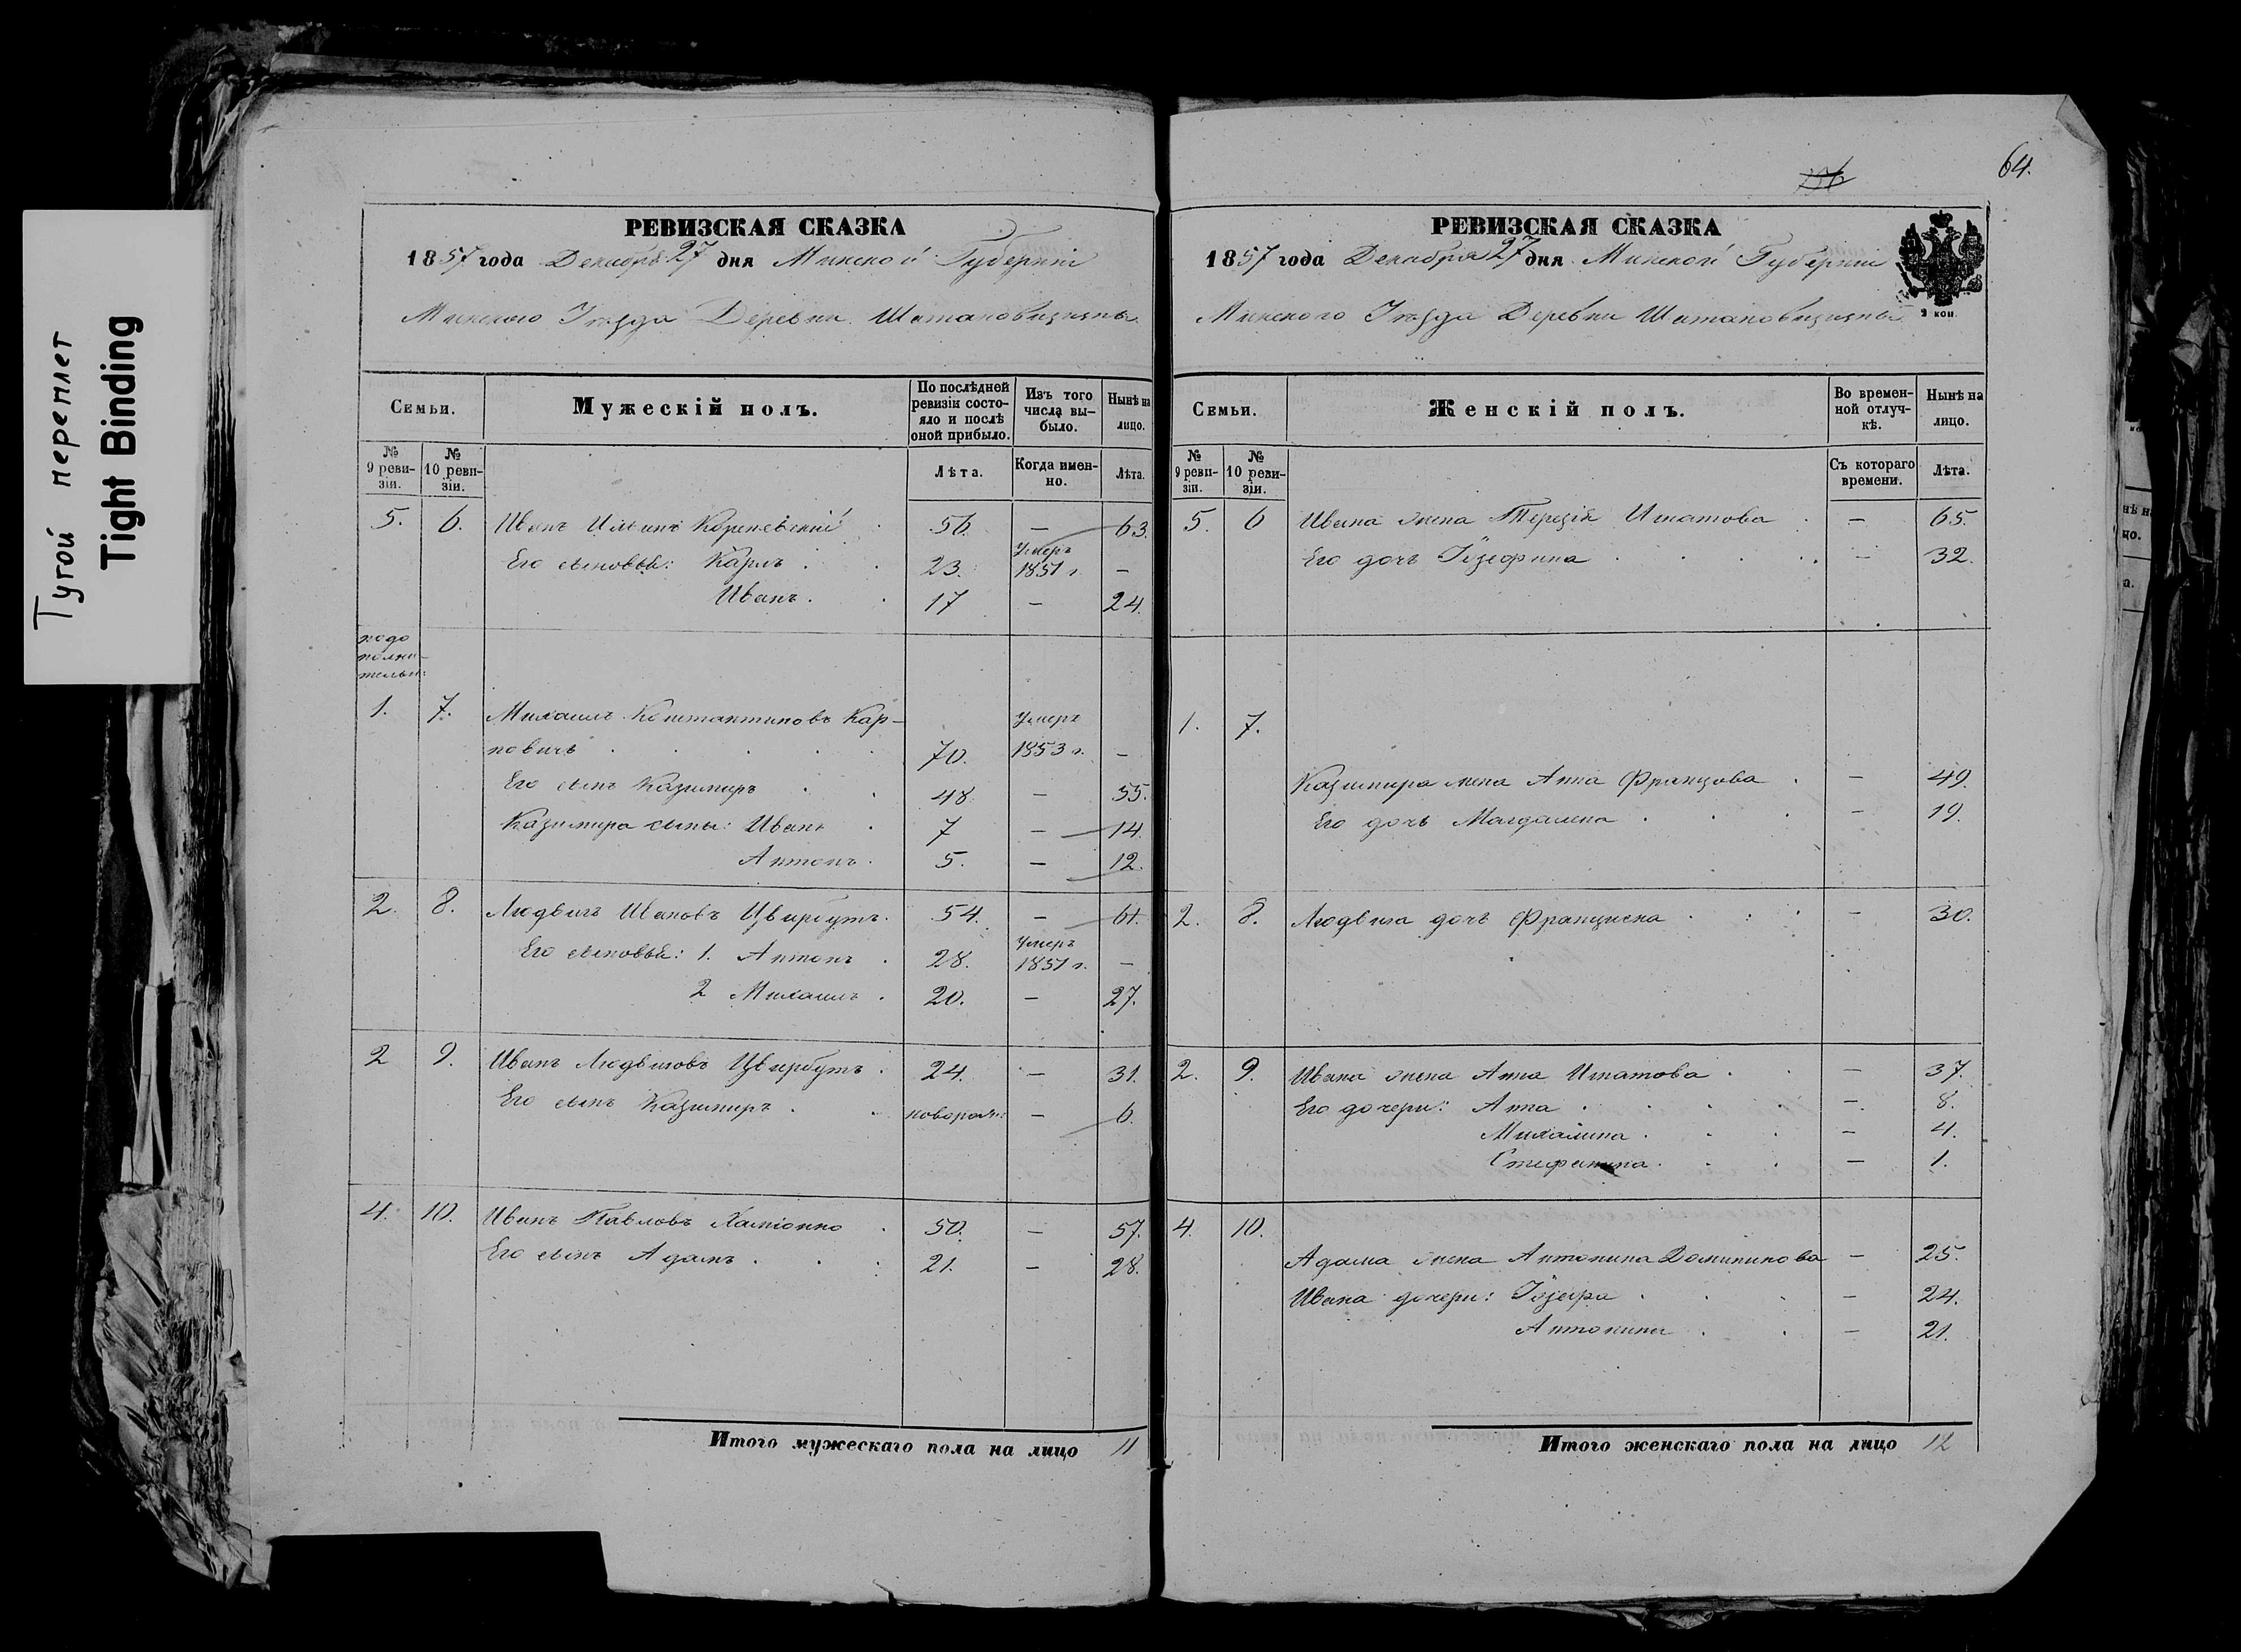 Тугой переплет
Tight Binding
64.
РЕВИЗСКАЯ СКАЗКА
1857 года Декабря 27 дня Минской Губерніи
Минского Уѣзда Деревни
Семьи.
Мужескій полъ.
По послѣдней ревизіи состо-
яло и послѣ
оной прибыло.
Изъ того
числа вы-
было.
Нынѣ на
лицо.
№
9 реви-
зіи.
№
10 реви-
зіи.
Лѣта.
Когда имен-
но.
Лѣта.
5. 6. Иванъ 56. — 63.
Его сыновья: Карлъ . . 23. Умеръ 1851 г. —
Иванъ . . 17 — 24.
подо
полни-
тельн:
1. 7. Михаилъ Константиновъ Кар-
повичъ . . . . . 70. Умеръ 1853 г. —
Его сынъ Казимиръ . . 48. — 55.
Казимира сыны: Иванъ . 7 — 14.
Антонъ . 5. — 12.
2. 8. Людвигъ Ивановъ Цвирбутъ. 54. — 61.
Его сыновья: 1. Антонъ . 28. Умеръ 1851 г. —
2 Михаилъ . 20. — 27.
2 9. Иванъ Людвиговъ Цвирбутъ . 24. — 31.
Его сынъ Казимиръ . .новорож: — 6.
4. 10. Иванъ Павловъ . 50. — 57.
Его сынъ Адамъ . . . 21. — 28.
Итого мужескаго пола на лицо 11
РЕВИЗСКАЯ СКАЗКА
1857 года Декабря 27 дня Минской Губерніи
Минского Уѣзда Деревни
2 коп.
Семьи.
Женскій полъ.
Во времен-
ной отлуч-
кѣ.
Нынѣ на
лицо.
№
9 реви-
зіи.
№
10 реви-
зіи.
Съ котораго
времени.
Лѣта.
5. 6 Ивана жена Терезія Игнатова . — 65.
Его дочь Іозефина . . . . — 32.
1. 7.
Казимира жена Анна Францова . — 49.
Его дочь Магдалена . . . — 19.
2. 8. Людвига дочь Франциска . . . — 30.
2. 9. Ивана жена Анна Игнатова . . — 37.
Его дочери: Анна . . . . — 8.
Михалина . . . — 4.
Стефанина . . . — 1.
4. 10.
Адама жена Антонина Доминикова — 25.
Ивана дочери: Іозефа . . . — 24.
Антонина . . — 21.
Итого женскаго пола на лицо 12